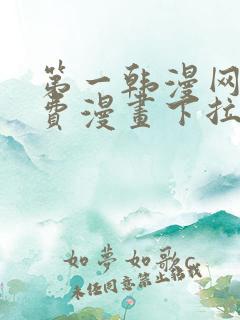 第一韩漫网
费漫畫下拉
如夢如歌c
未经同意禁止转载